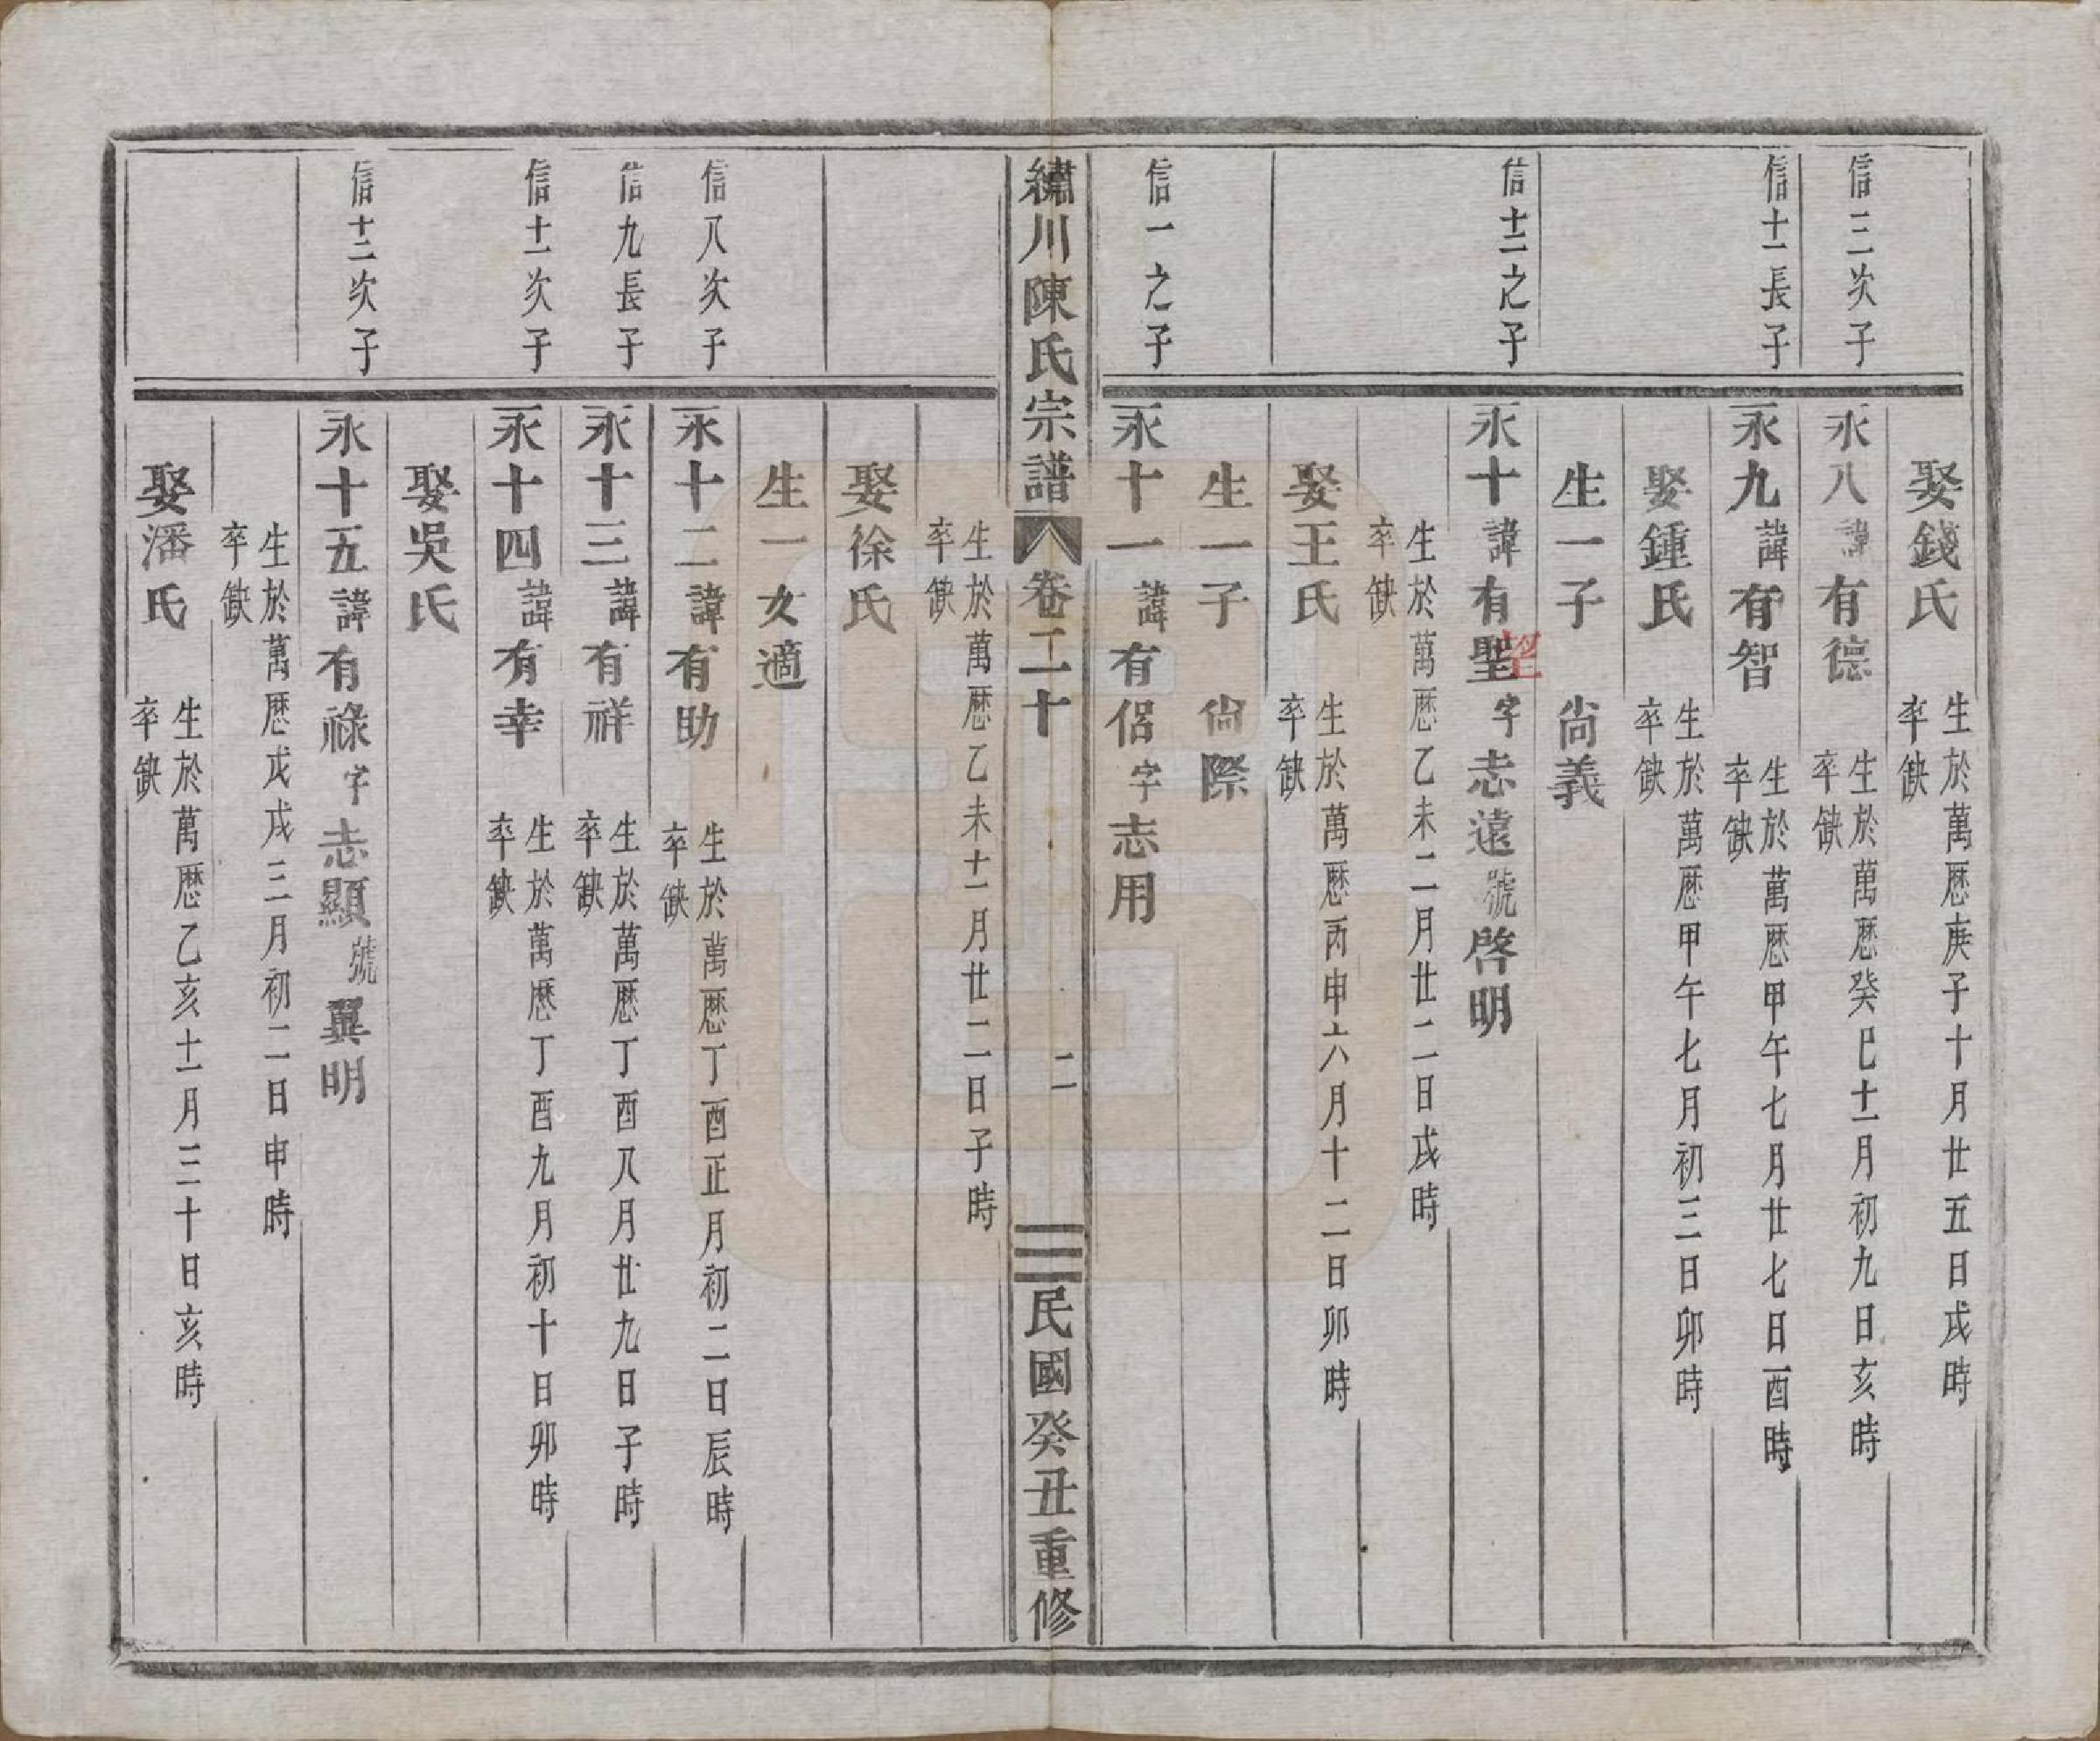 娶錢氏 生於萬歷庚子十月廿五日戌時
卒缺
信三次子
永八諱有德 生於萬歷癸巳十一月初九日亥時
卒缺
信十一長子
永九諱有智 生於萬歷甲午七月廿七日酉時
卒缺
娶鍾氏 生於萬歷甲午七月初三日卯時
卒缺
生一子 尙義
信十二之子
永十諱有聖字志遠號啓明
望
生於萬歷乙未二月廿二日戌時
卒缺
娶王氏 生於萬歷丙申六月十二日卯時
卒缺
生一子 尙際
信一之子
永十一諱有侶字志用
繡川陳氏宗譜 卷二十 二 民國癸丑重修
生於萬歷乙未十一月廿二日子時
卒缺
娶徐氏
生一女適
信八次子
永十二諱有助 生於萬歷丁酉正月初二日辰時
卒缺
信九長子
永十三諱有祥 生於萬歷丁酉八月廿九日子時
卒缺
信十一次子
永十四諱有幸 生於萬歷丁酉九月初十日卯時
卒缺
娶吳氏
信十三次子
永十五諱有祿字志顯號翼明
生於萬歷戊戌三月初二日申時
卒缺
娶潘氏 生於萬歷乙亥十一月三十日亥時
卒缺